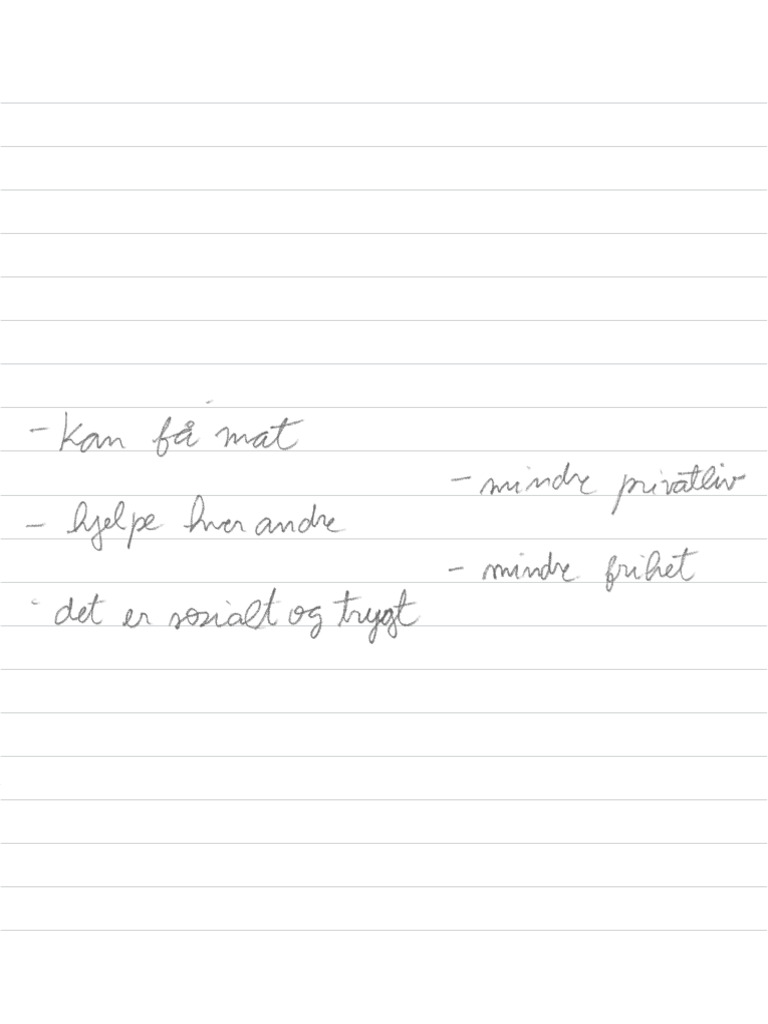 - Kan få mat
- hjelpe hver andre
- det er sosialt og trygt
- mindre privatliv
- mindre frihet